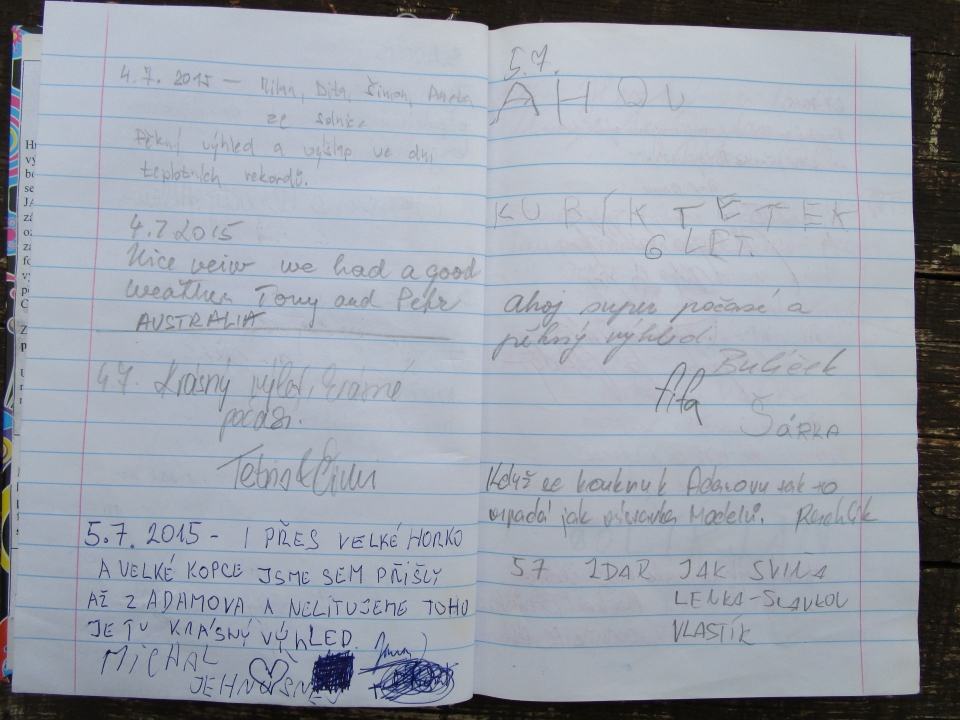 4.7. 2015 — Milan, Dita, Šimon,
ze Solnic
Pěkný výhled a výšlap ve dni
teplotních rekordů.
4.7.2015
Nice veiw we had a good
weather Tony and Petr
AUSTRALIA
4.7. Krásný výhled, krásné
počasí.
5.7. 2015 - I PŘES VELKÉ HORKO
A VELKÉ KOPCE JSME SEM PŘIŠLY
AŽ Z ADAMOVA A NELITUJEME TOHO
JE TU KRÁSNÝ VÝHLED.
MICHAL
5.7.
AHOJ
KUBÍK TETEK
6 LET.
ahoj super počasí a
pěkný výhled.
Bulíček
fifa
ŠÁRKA
Když se kouknu k Adamovu tak to
vypadá jak výstavka Modelů.
5.7 ZDAR JAK SVIŇA
LENKA-SLAVKOV
VLASTÍK